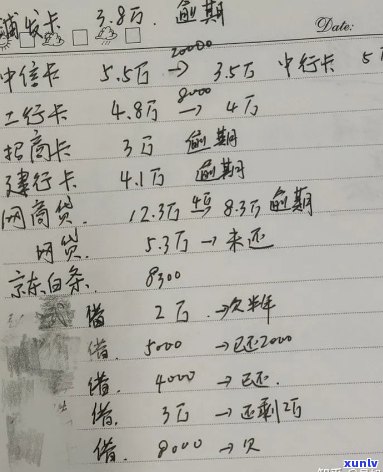 浦发卡 3.8万. 逾期
Date:
中信卡 5.5万 →20000 3.5万 中行卡 5万
工行卡 4.8万 →8000 4万
招商卡 3万 逾期
建行卡 4.1万 逾期
网商贷. 12.3万 8.3万 逾期
网贷. 5.3万 → 未还
京东白条. 8300
借 2万 → 欠半年
借. 5000 → 已还2000
借. 4000 → 已还.
借. 3万 → 还剩2万
借. 8000 → 欠
xunlv